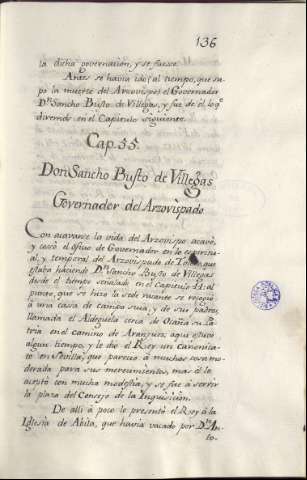 136
la dicha governacion, y se fuesse.
Antes se havia ido (al tiempo, que su-
po la muerte del Arzovispo) el Governador
Dn. Sancho Busto de Villegas, y fue de él lo q.
diremos en el Capitulo siguiente.
Cap. 55.
Don Sancho Busto de Villegas
Governador del Arzovispado
Con acavarse la vida del Arzovispo acavó,
y cesó el oficio de Governador en lo espiritu-
al, y temporal de Arzovispado de Toledo, que
estaba haciendo Dn. Sancho Busto de Villegas
desde el tiempo señalado en el Capitulo 44: al
punto, que se hizo la sede vacante se recogió
á una casa de campo suya, y de sus padres,
llamada el Aldeguela cerca de Ocaña su Pa-
tria en el camino de Aranjuez: aqui estuvo
algun tiempo, y le dió el Rey un canonica-
to en Sevilla, que pareció á muchos cosa mo-
derada para sus merecimientos, mas él le
aceptó con mucha modestia, y se fue á servir
la plaza del Consejo de la Inquisicion.
De alli á poco le presentó el Rey á la
Iglesia de Abila, que havia vacado por Dn. An-
to-